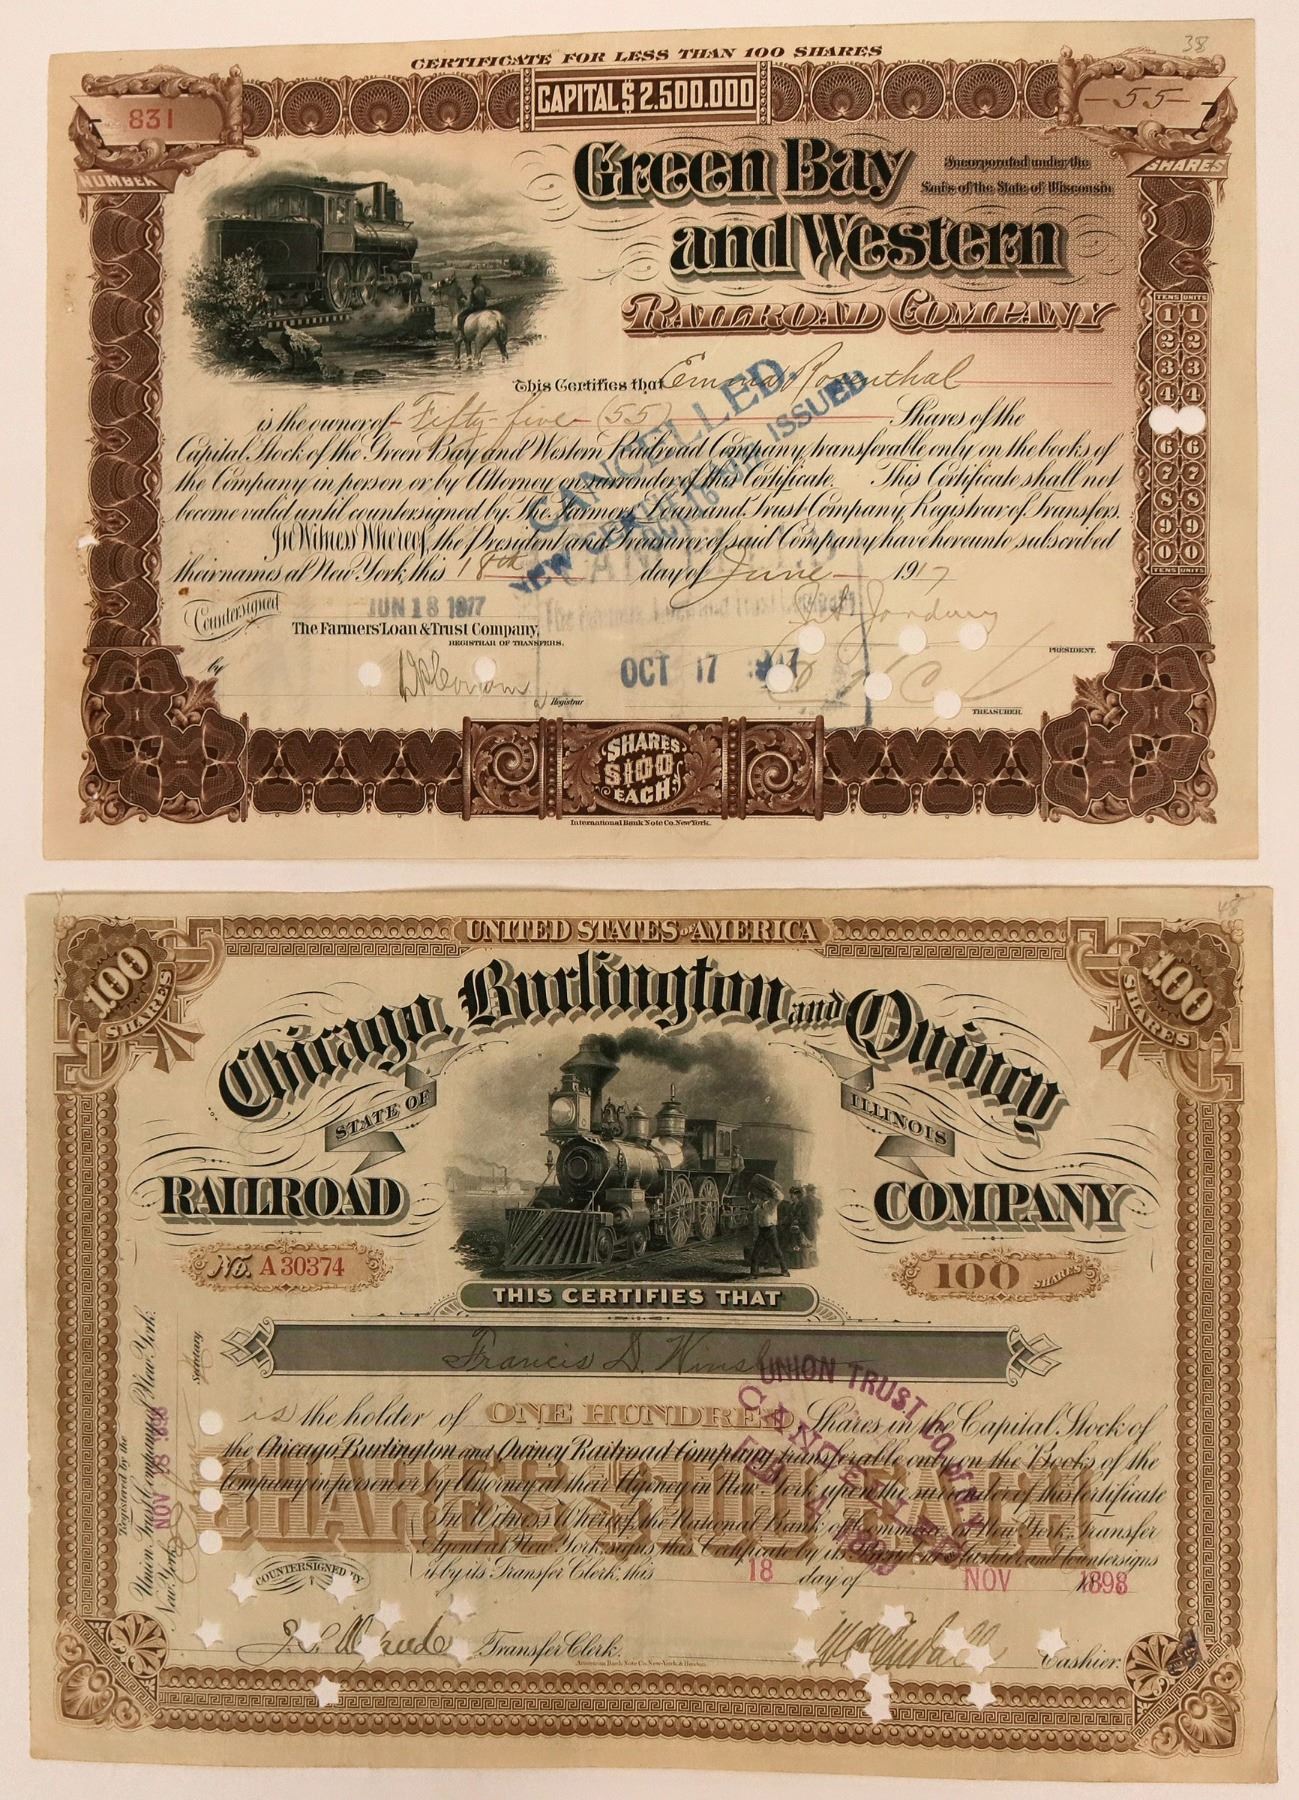 38
CERTIFICATE FOR LESS THAN 100 SHARES
CAPITAL $2.500.000
831
NUMBER
55
SHARES
Green Bay
Incorporated under the
Laws of the State of Wisconsin
and Western
RAILROAD COMPANY
TENS UNITS
1 1
2 2
3 3
4 4
6 6
7 7
8 8
9 9
0 0
TENS UNITS
This Certifies that Emma Rosenthal
is the owner of Fifty-five (55) Shares of the
Capital Stock of the Green Bay and Western Railroad Company, transferable only on the books of
the Company in person or by Attorney on surrender of this Certificate. This Certificate shall not
become valid until countersigned by The Farmers' Loan and Trust Company, Registrar of Transfers.
In Witness Whereof, the President and Treasurer of said Company have hereunto subscribed
their names at New York, this 18th day of June 1917
CANCELLED.
NEW CERTIFICATE ISSUED
OCT 16
Countersigned
JUN 18 1917
The Farmers' Loan & Trust Company,
REGISTRAR OF TRANSFERS.
by
Registrar
OCT 17
PRESIDENT.
TREASURER.
SHARES
$100
EACH
International Bank Note Co. New York.
48
UNITED STATES OF AMERICA
100
SHARES
100
SHARES
Chicago, Burlington and Quincy
STATE OF
ILLINOIS
RAILROAD
COMPANY
No. A30374
100 SHARES
THIS CERTIFIES THAT
Francis D. Winslow
is the holder of ONE HUNDRED Shares in the Capital Stock of
the Chicago, Burlington and Quincy Railroad Company transferable only on the Books of the
Company in person or by Attorney at their Agency in New York upon the surrender of this Certificate
In Witness Whereof, the National Bank of Commerce, in New York, Transfer
Agent at New York, signs this Certificate by its Cashier and countersigns
it by its Transfer Clerk, this 18 day of NOV 1898
SHARES $100 EACH
UNION TRUST CO. of N.Y.
CANCELLED
FEB 4 1899
Registered by the
Union Trust Company of New York.
New York
NOV 18 1898
Secretary
COUNTERSIGNED BY
Transfer Clerk.
Cashier.
American Bank Note Co. New-York & Boston.